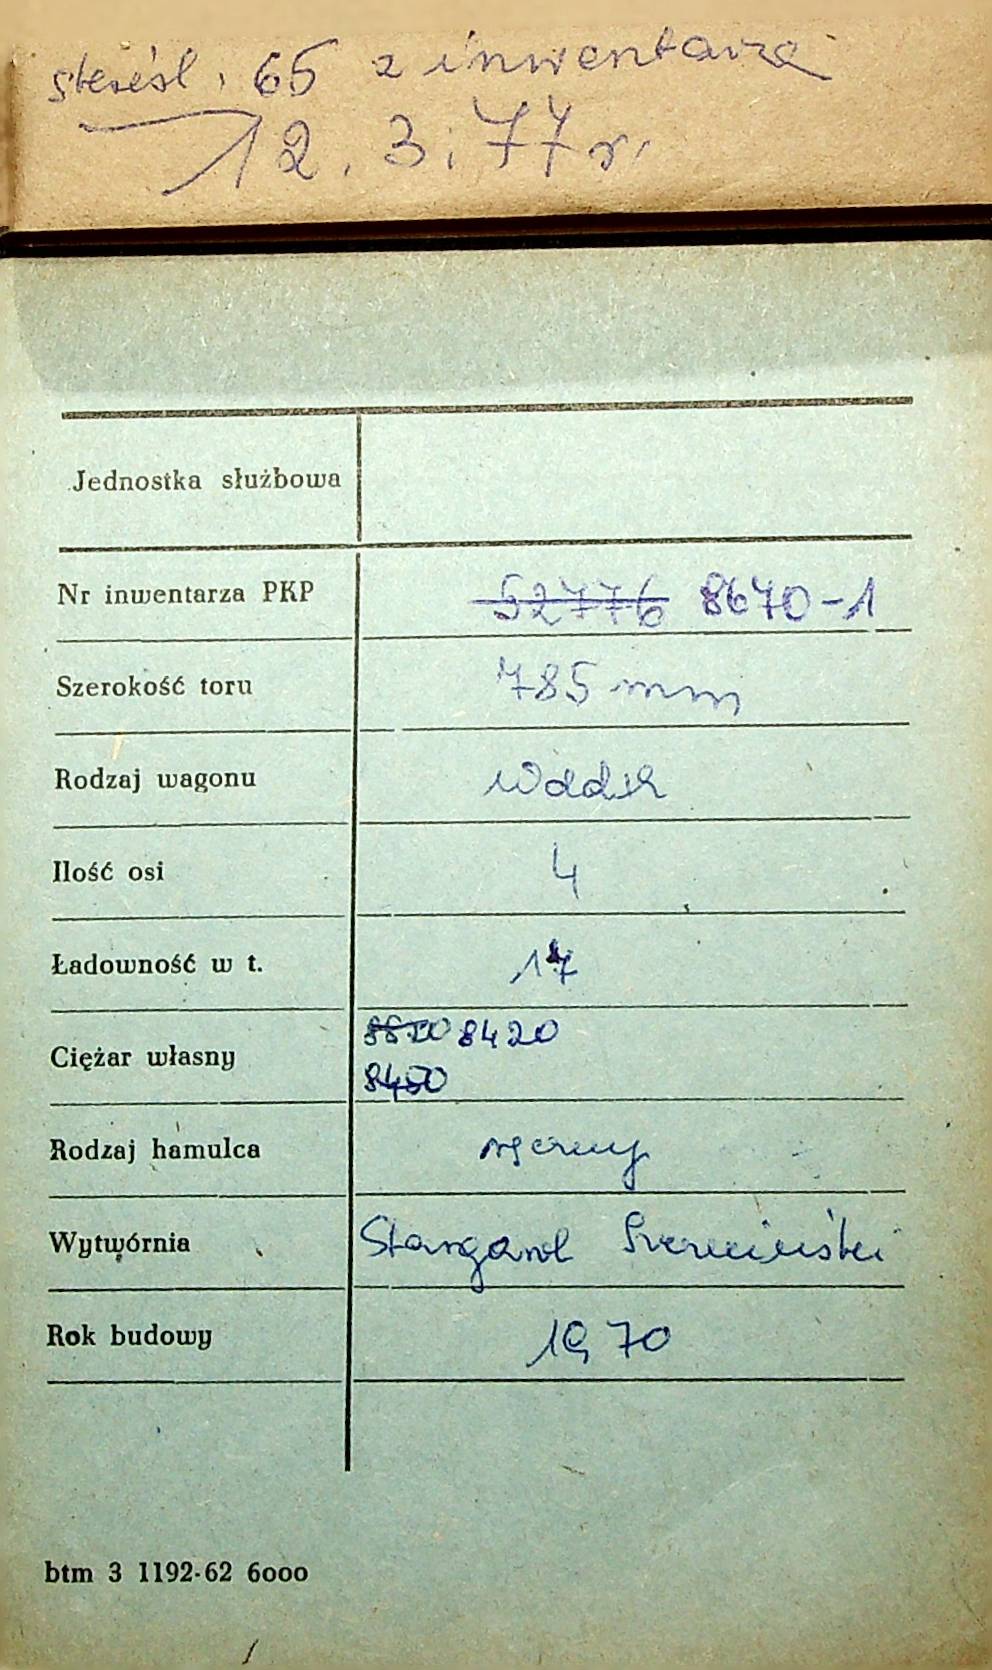 skreśl. 65 z inwentarza
12.3.77r.
Jednostka służbowa
Nr inwentarza PKP 52776 8670-1
Szerokość toru 785 mm
Rodzaj wagonu Wddxh
Ilość osi 4
Ładowność w t.
Ciężar własny 8420
Rodzaj hamulca ręczny
Wytwórnia Stargard Szczeciński
Rok budowy 1970
btm 3 1192-62 6ooo